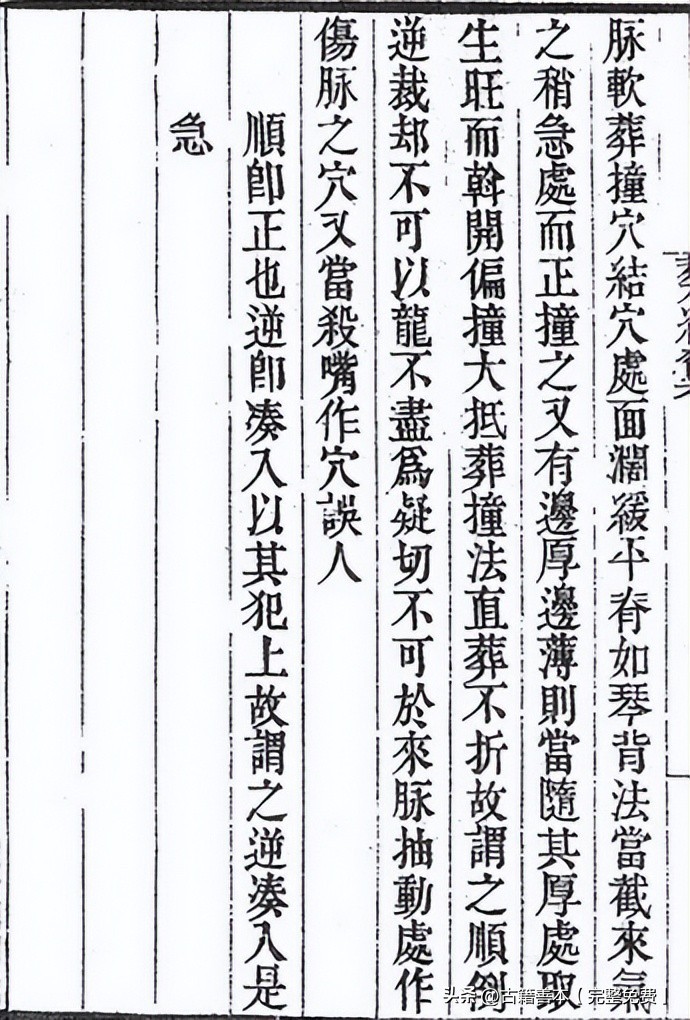 脉軟葬撞穴結穴處面濶緩平脊如琴背法當截來氣
之稍急處而正撞之又有邊厚邊薄則當隨其厚處取
生旺而斡開偏撞大抵葬撞法直葬不折故謂之順倒
逆裁却不可以龍不盡爲疑切不可於來脉抽動處作
傷脉之穴又當殺嘴作穴誤人
順卽正也逆卽凑入以其犯上故謂之逆凑入是
急
头条 @古籍善本（完整免费